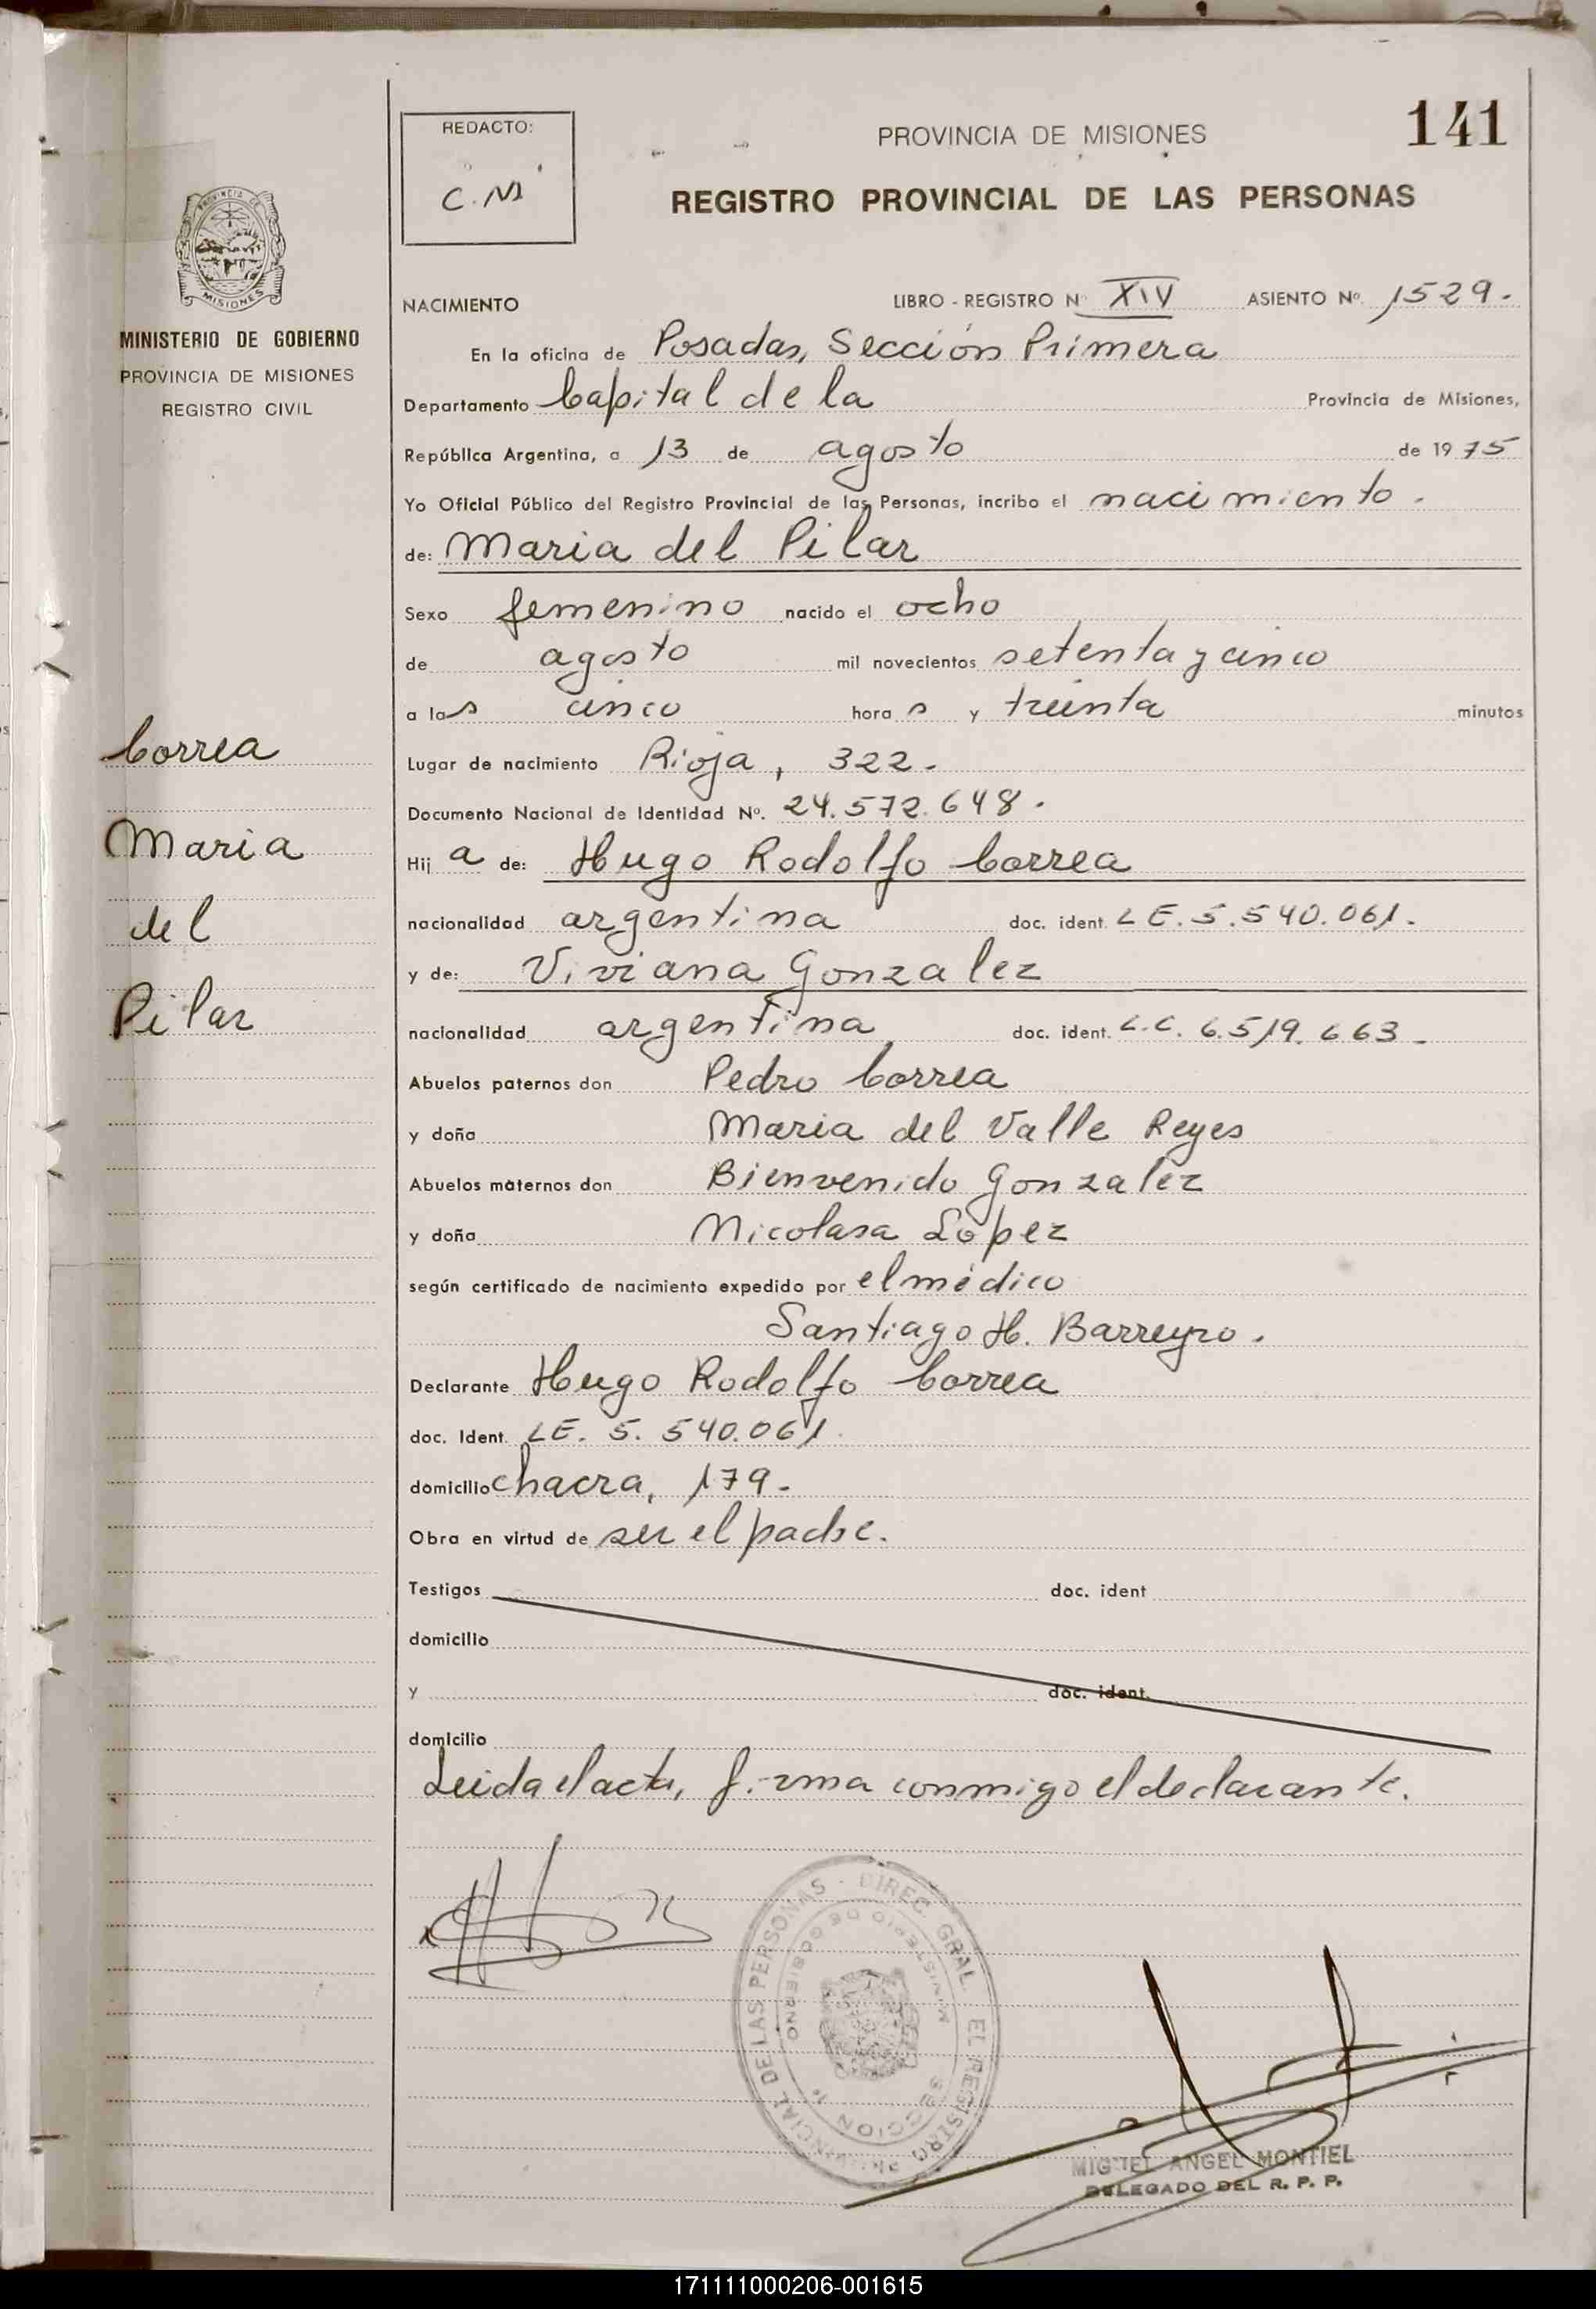 141
REDACTO:
C.M
PROVINCIA DE MISIONES
REGISTRO PROVINCIAL DE LAS PERSONAS
MISIONES
MINISTERIO DE GOBIERNO
PROVINCIA DE MISIONES
REGISTRO CIVIL
NACIMIENTO LIBRO - REGISTRO Nº XIV ASIENTO Nº 1529.
En la oficina de Posadas, Sección Primera
Departamento Capital de la Provincia de Misiones,
República Argentina, a 13 de agosto de 1975
Yo Oficial Público del Registro Provincial de las Personas, incribo el nacimiento.
de: Maria del Pilar
Sexo femenino nacido el ocho
de agosto mil novecientos setenta y cinco
a las cinco horas y treinta minutos
Lugar de nacimiento Rioja, 322.
Documento Nacional de Identidad Nº. 24.572.648.
Hija de: Hugo Rodolfo Correa
nacionalidad argentina doc. ident. LE. 5.540.061.
y de: Viviana Gonzalez
nacionalidad argentina doc. ident. L.C. 6.519.663.
Abuelos paternos don Pedro Correa
y doña Maria del Valle Reyes
Abuelos maternos don Bienvenido Gonzalez
y doña Nicolasa López
según certificado de nacimiento expedido por el médico
Santiago H. Barreyro.
Declarante Hugo Rodolfo Correa
doc. Ident. LE. 5. 540.061.
domicilio chacra, 179.
Obra en virtud de ser el padre.
Testigos doc. ident
domicilio
y doc. ident.
domicilio
Leida el acta, firma conmigo el declarante.
Correa
Maria
del
Pilar
DIREC. GRAL. EL REGISTRO PROVINCIAL DE LAS PERSONAS
MINISTERIO DE GOBIERNO
SECCION 1ª
MIGUEL ANGEL MONTIEL
DELEGADO DEL R. P. P.
171111000206-001615